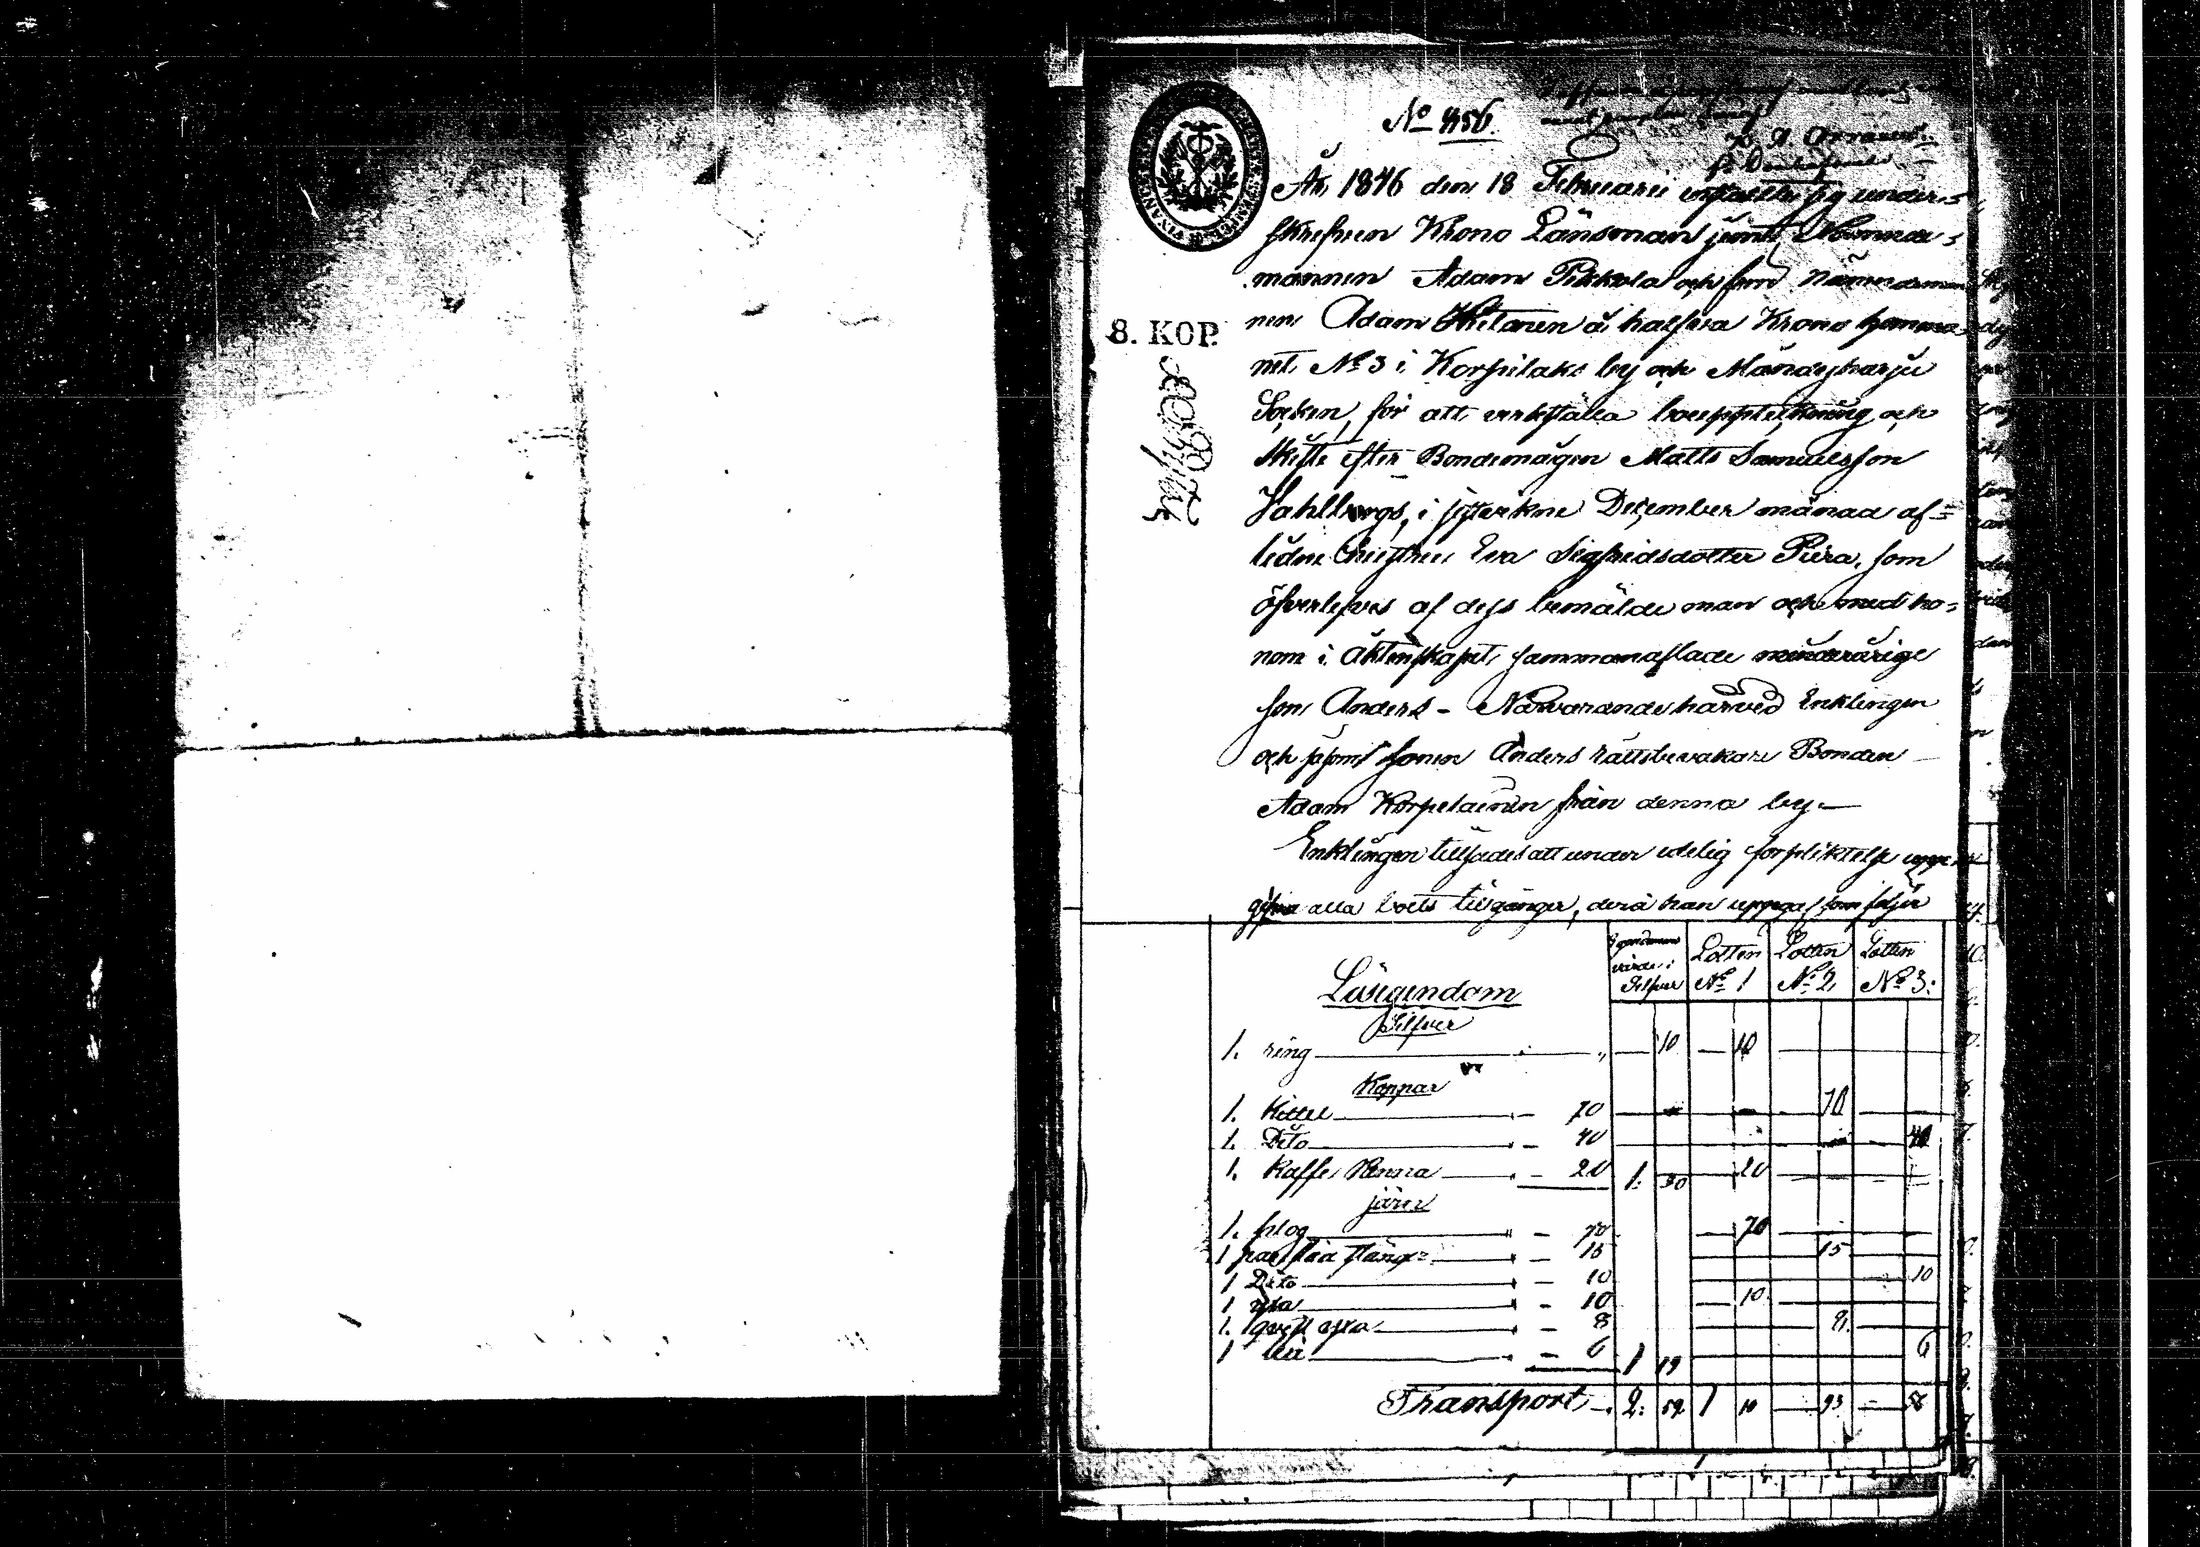 No 856.
År 1846 den 18 Februarii infallne sig under=
skrefven Krono Länsman jemte
mannen Adam Pekkola och förre Nämndeman
nen Adam å halfva Krono hemma
net No 3 i Korpilaks by och Mändyharju
8. KOP.
Socken, för att verkställa bouppteckning och
skifte efter Bondemågen Matts Samuelsson
Hahlbergs, i sistvikne December månad af=
ledne hustru Eva Sigfridsdotter Piira, som
öfverlefves af dess bemälde man och med ho=
nom i äktenskapet sammanaflade minderårige
son Anders - Närvarande härvid Enklingen
och såsom sonen Anders rättsbevakare Bonden
Adam Korpelainen från denna by.
Enklingen tillsades att under edelig förpliktelse uppe
gifva alla boets tillgångar, derå han uppgaf som följer
Lösegendom
Egendomens värde i Silfver
Lotten No 1
Lotten No 2
Lotten No 3:
Silfver
1. ring — 10 — 10
Koppar
1. Kittel — 70 — 70
1. Dito — 40 — 40
1. Kaffe Kanna — 20 1. 30 — 20
järn
1. plog — 70 — 70
1 par stänger — 15 — 15
1 Dito — 10 — 10
1 yxa — 10 — 10
1. yxa — 8 — 8.
1 lia — 6 1 19 — 6
Transport 2. 59 1 10 — 93 — 56